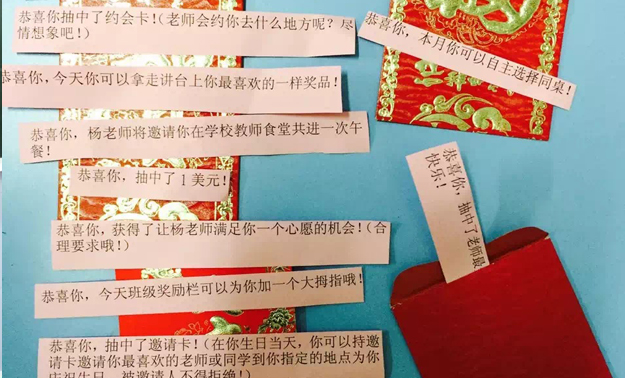 恭喜你抽中了约会卡!(老师会约你去什么地方呢?尽
情想象吧!)
恭喜你，本月你可以自主选择同桌!
恭喜你，今天你可以拿走讲台上你最喜欢的一样奖品!
恭喜你，杨老师将邀请你在学校教师食堂共进一次午
餐!
恭喜你，抽中了1美元!
恭喜你，抽中了老师最
快乐!
恭喜你，获得了让杨老师满足你一个心愿的机会!(合
理要求哦!)
恭喜你，今天班级奖励栏可以为你加一个大拇指哦!
恭喜你，抽中了邀请卡!(在你生日当天，你可以持邀
请卡邀请你最喜欢的老师或同学到你指定的地点为你
庆祝生日，被邀请人不得拒绝!)